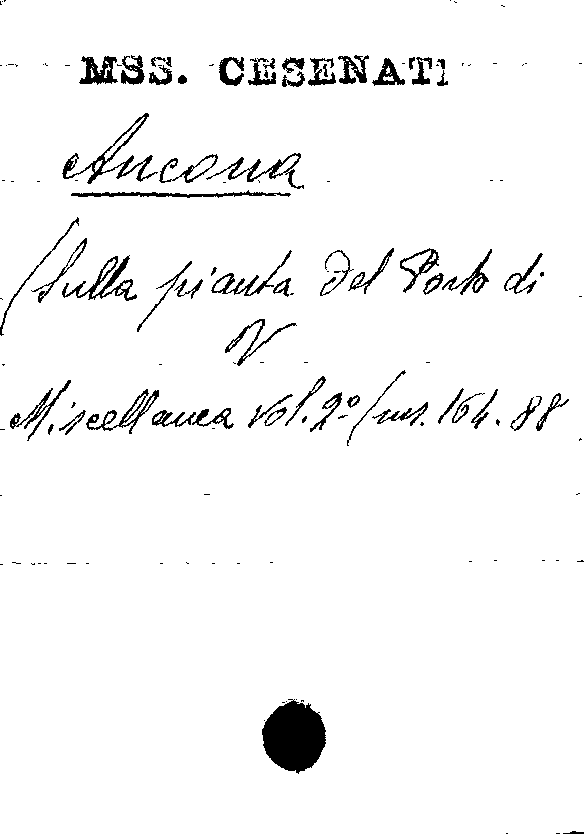 MSS. CESENATI
Ancona
(Sulla pianta del Porto di
V
Miscellanea vol. 2º (ms. 164. 88